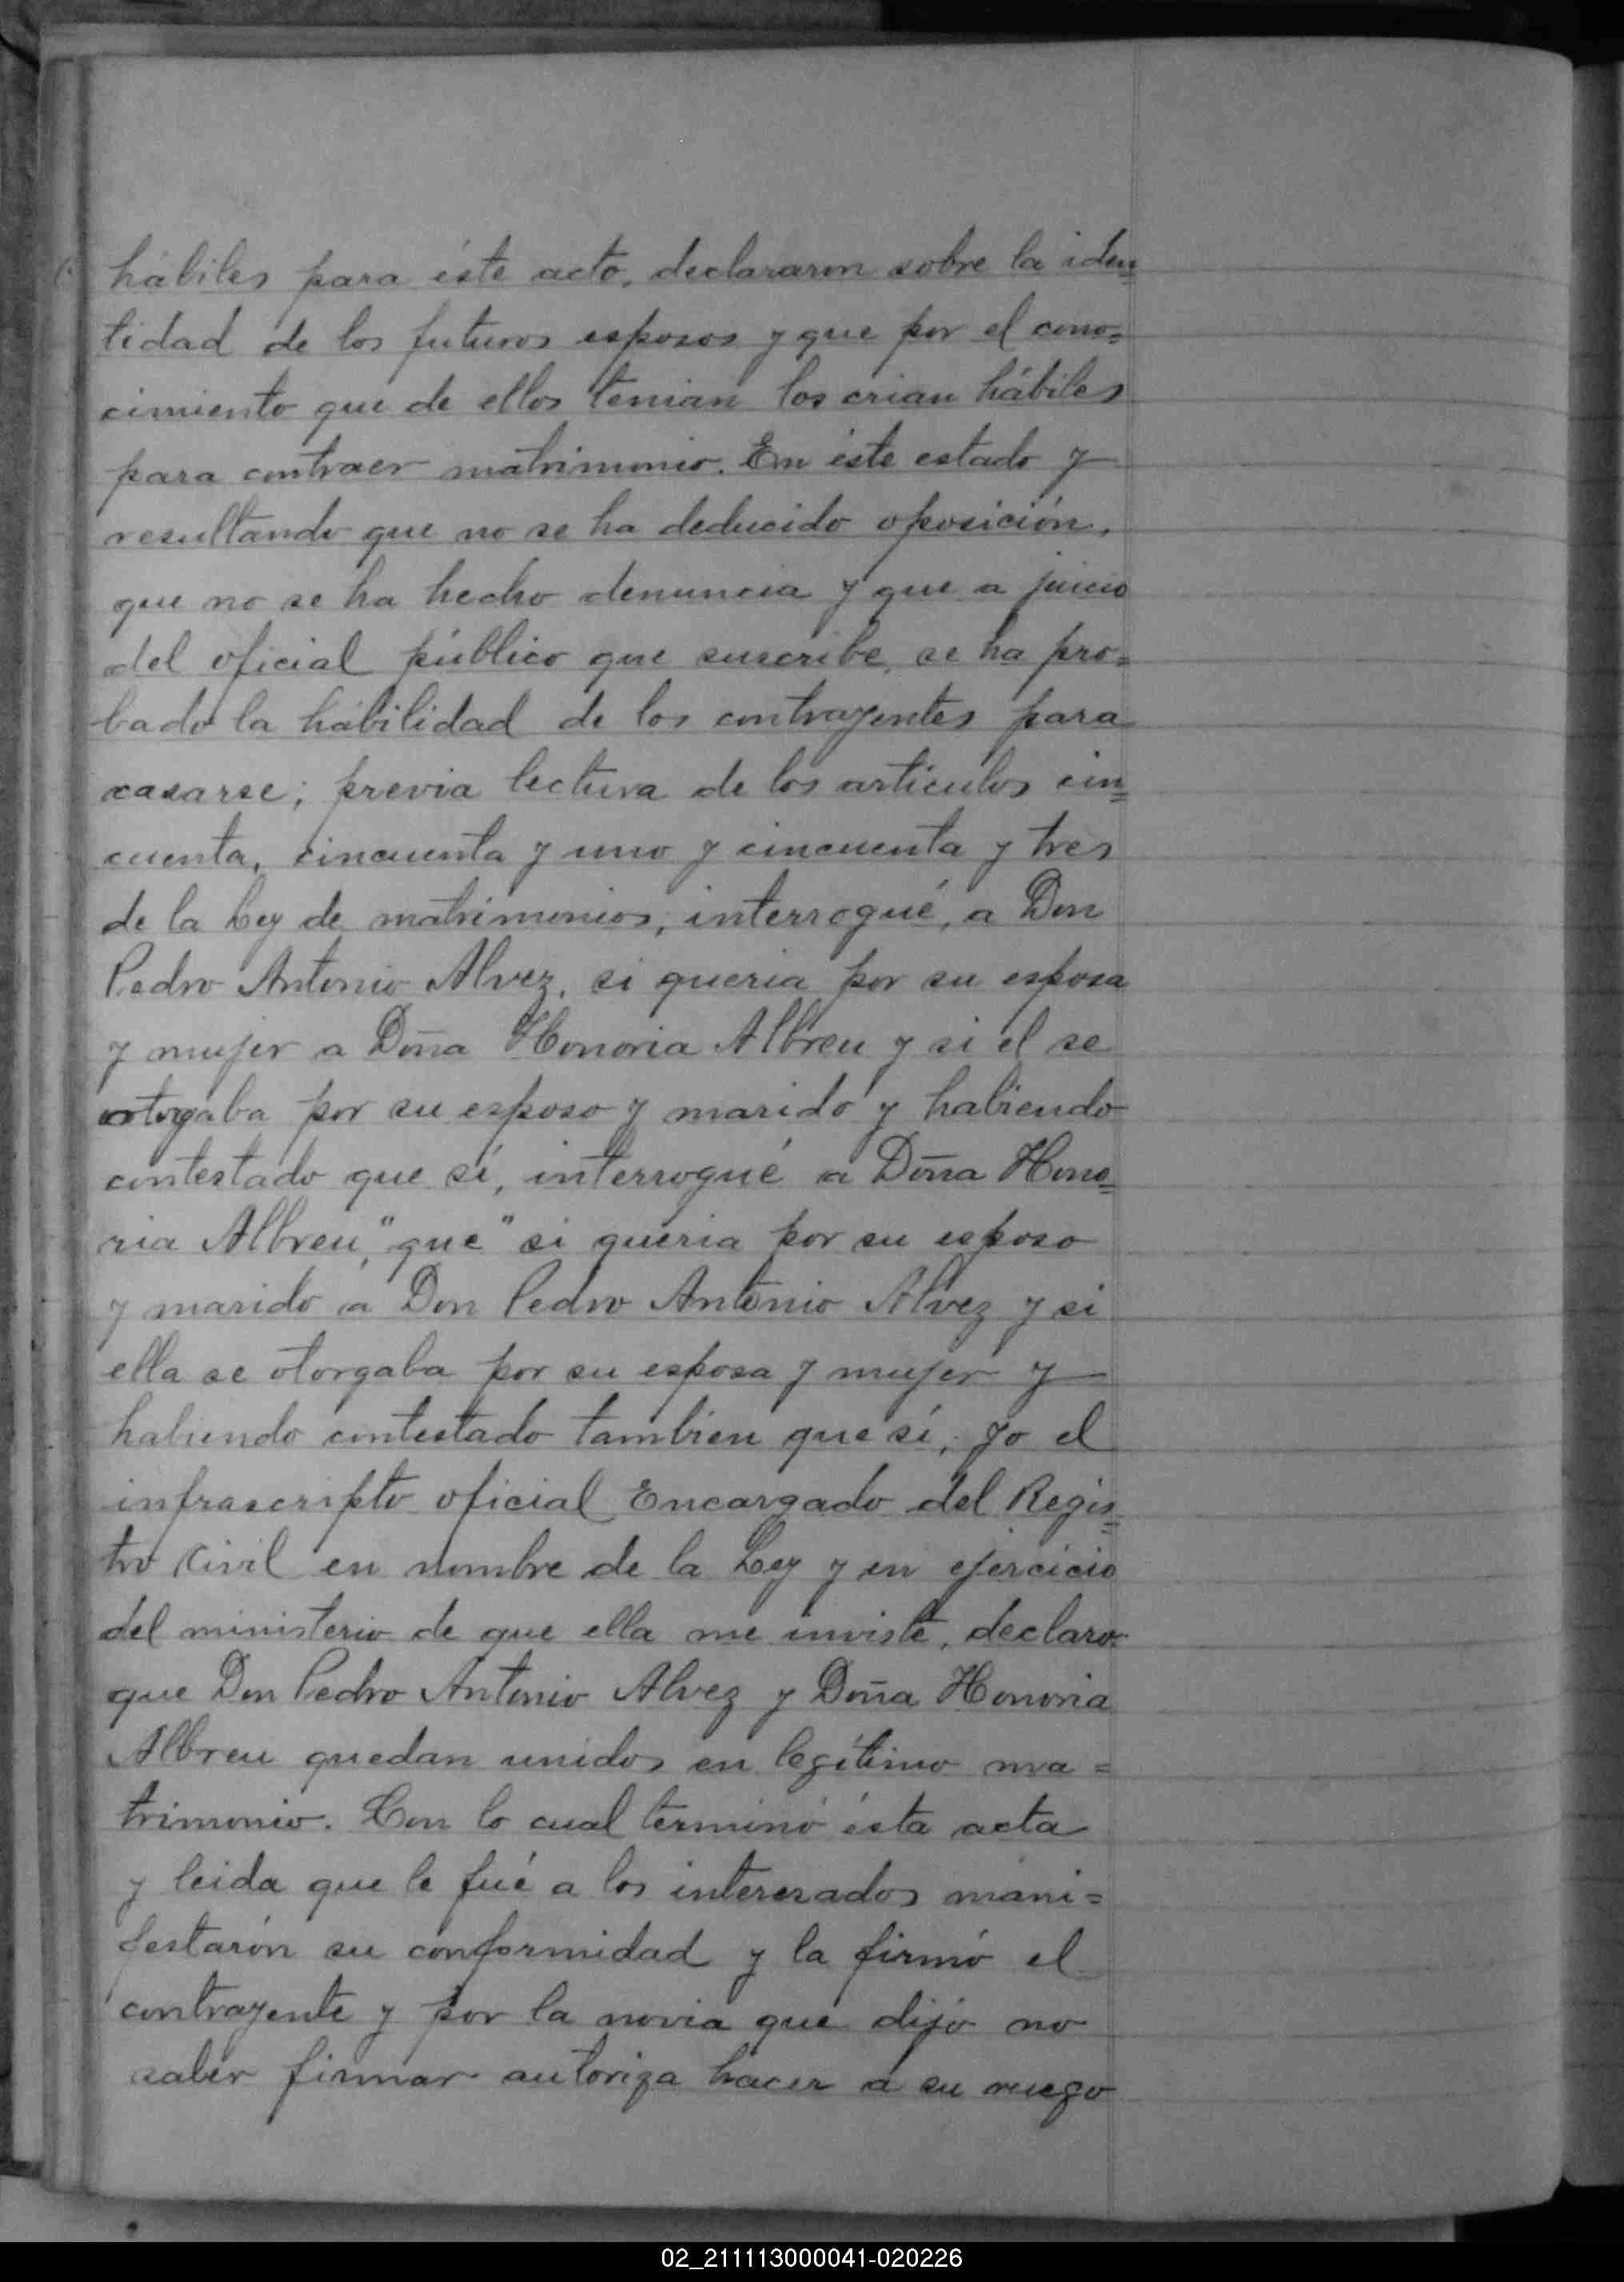 hábiles para éste acto, declararon sobre la iden=
tidad de los futuros esposos y que por el cono=
cimiento que de ellos tenian los crian hábiles
para contraer matrimonio. En éste estado y
resultando que no se ha deducido oposición,
que no se ha hecho denuncia y que a juicio
del oficial público que suscribe, se ha pro=
bado la hábilidad de los contrayentes para
casarse; previa lectura de los artículos cin=
cuenta, cincuenta y uno y cincuenta y tres
de la Ley de matrimonios, interrogué, a Don
Pedro Antonio Alvez, si queria por su esposa
y mujer a Doña Honoria Albreu y si el se
otorgaba por su esposo y marido y habiendo
contestado que sí, interrogué a Doña Hono=
ria Albreu, "que" si queria por su esposo
y marido a Don Pedro Antonio Alvez y si
ella se otorgaba por su esposa y mujer y
habiendo contestado tambien que sí, yo el
infrascripto oficial Encargado del Regis=
tro Civil en nombre de la Ley y en ejercicio
del ministerio de que ella me inviste, declaro
que Don Pedro Antonio Alvez y Doña Honoria
Albreu quedan unidos en legítimo ma=
trimonio. Con lo cual terminó ésta acta
y leida que le fué a los interesados mani=
festarón su conformidad y la firmó el
contrayente y por la novia que dijo no
saber firmar autoriza hacer a su ruego
02_211113000041-020226